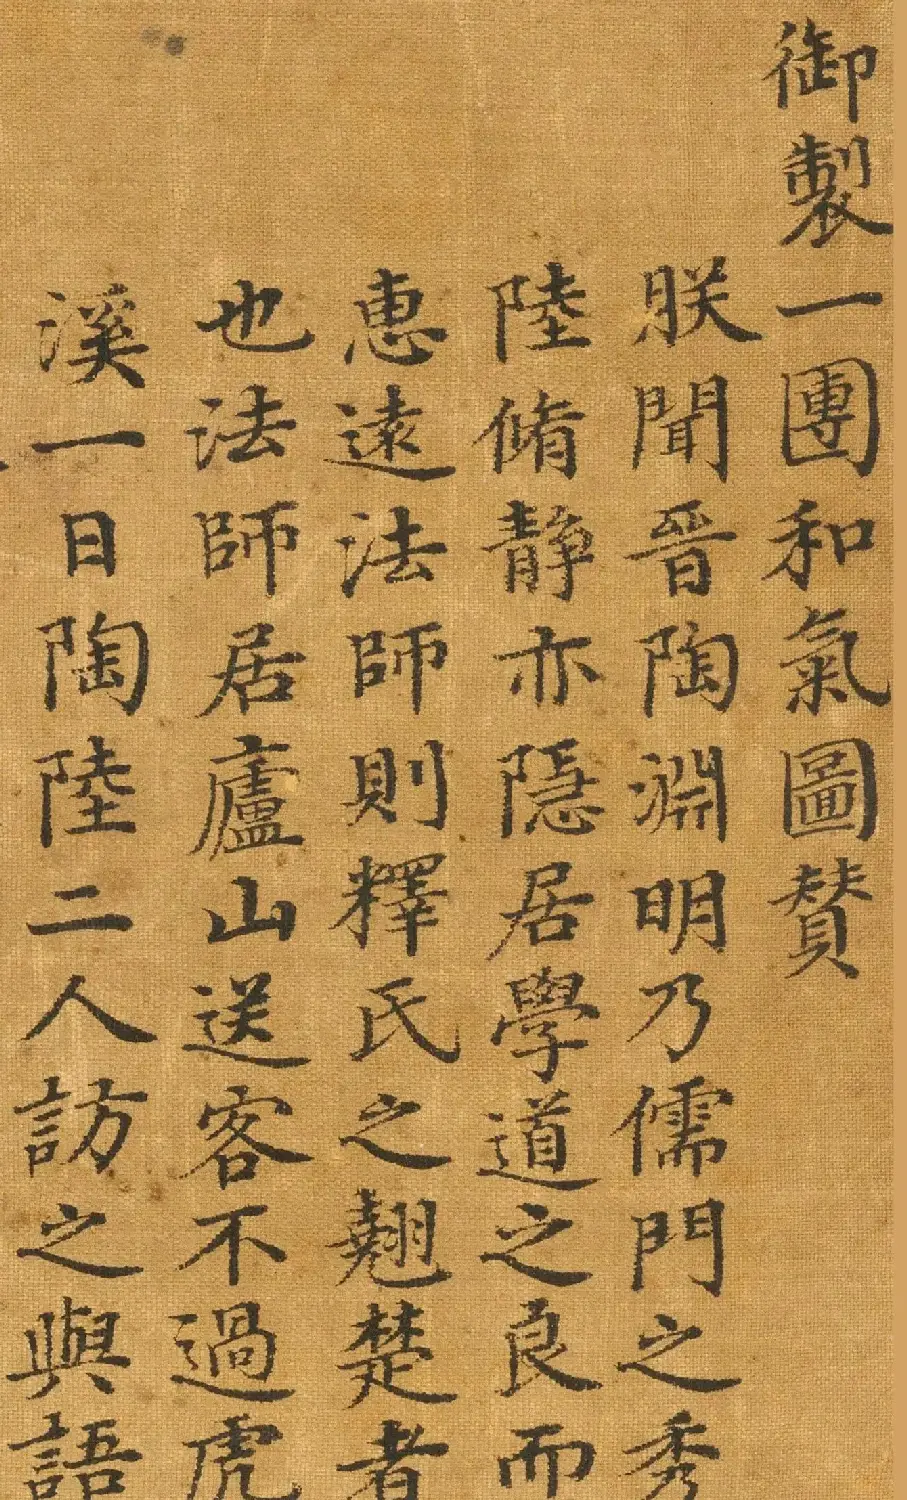 御製一團和氣圖贊
朕聞晉陶淵明乃儒門之秀
陸脩靜亦隱居學道之良而
惠遠法師則釋氏之翹楚者
也法師居廬山送客不過虎
溪一日陶陸二人訪之與語